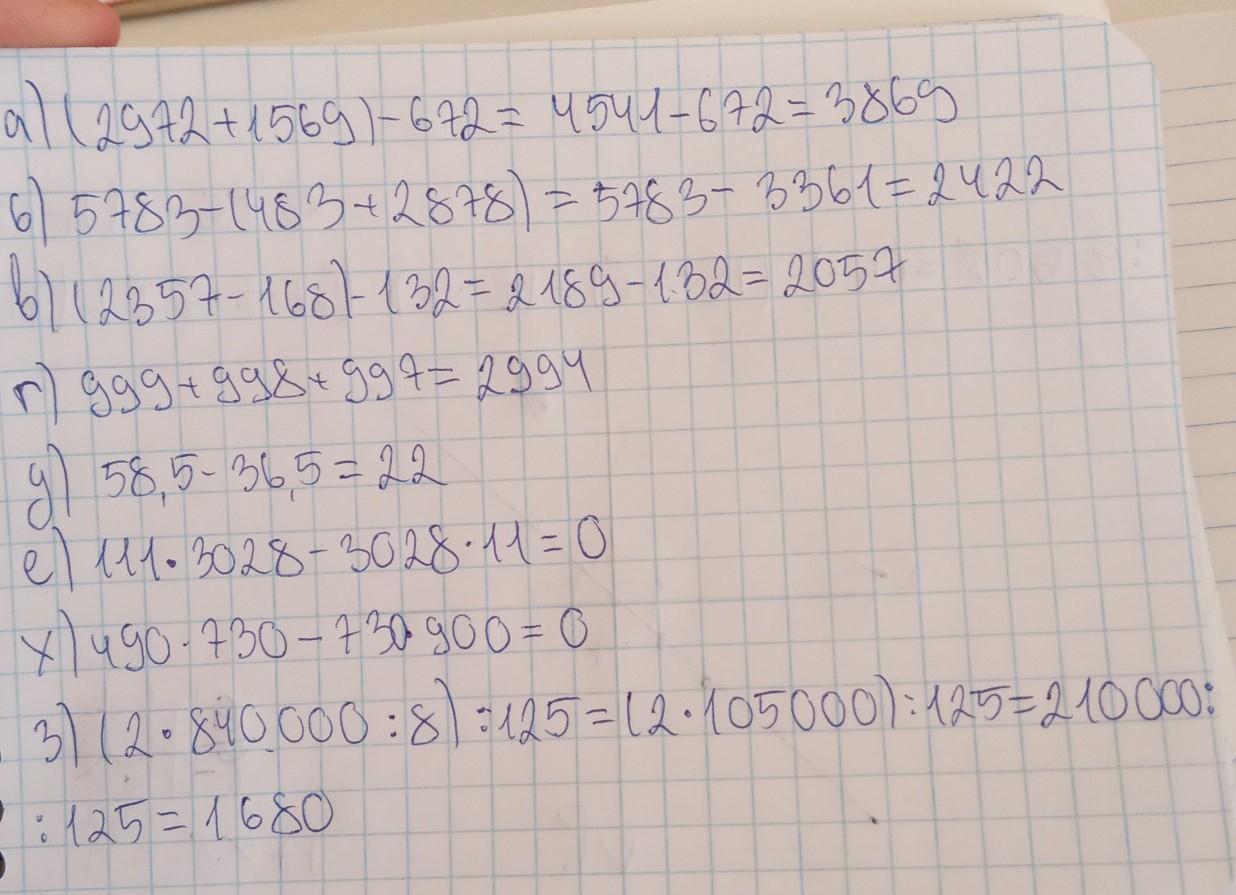 а) (2972+1569)-672= 4541-672=3869
б) 5783-(483+2878) = 5783- 3361=2422
в) (2357-168)-132=2189-132=2057
г) 999+998+997= 2994
g) 58,5-36,5=22
е) 111·3028-3028·11=0
х) 490·730-730·900=0
з) (2·840000:8):125=(2·105000):125=210000:
:125=1680